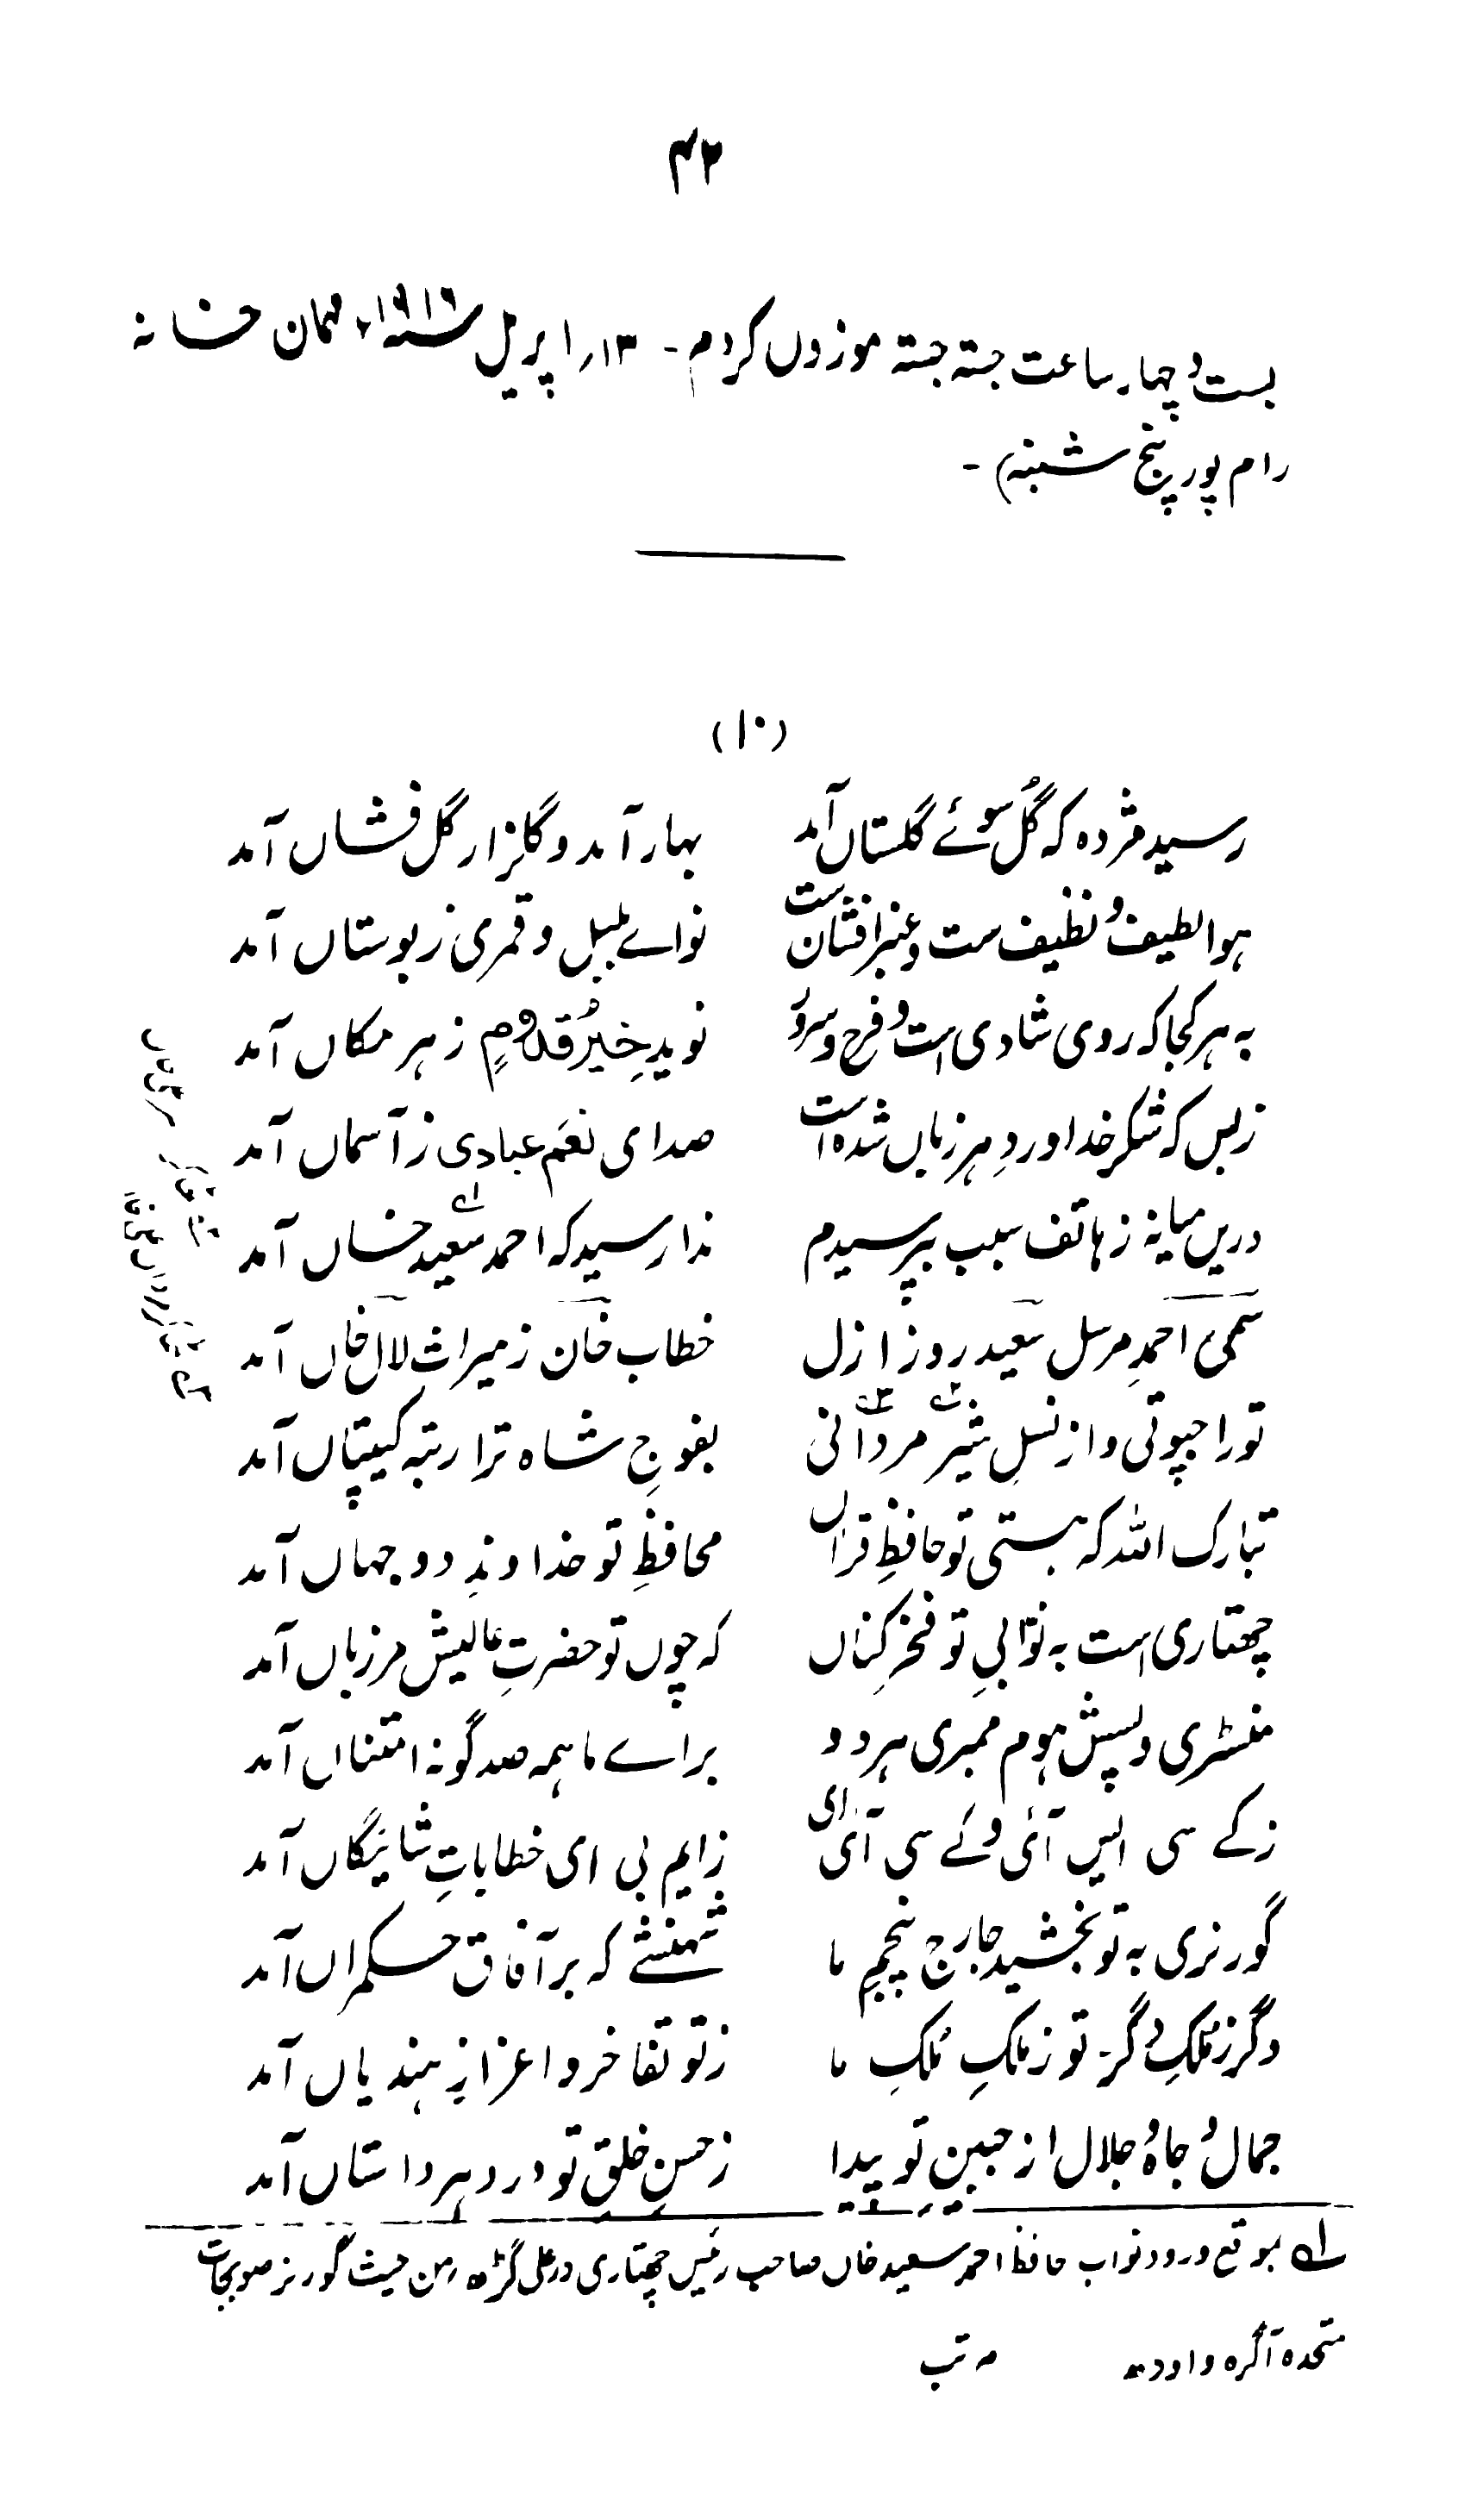 ۴۲
بست و چہار ساعت جستہ جستہ موزوں کردم۔ ۱۳ر اپریل ۱۹۱۶ء مکان خانہ
رام پور پنج شنبہ)۔
(۱۰)
رسید مژدہ کہ گُل سوئے گلستاں آمد بہار آمد و گلزار گل فشاں آمد
ہوا لطیف و نظیف ست و عنبر افشان ست نواے بلبل و قمری ز بوستاں آمد
بہ ہر کجا کہ روی شادی است و فرح و سرور نویدِ خیرُ قدومٍ ز ہر مکاں آمد
ز بس کہ شکرِ خدا وردِ ہر زباں شدہ است صدای نعم عبادی ز آسماں آمد
دریں میانہ ز ہاتف سبب بپرسیدم ندا رسید کہ احمد سعید خاں آمد
سمیِ احمدِ مرسل سعید روز ازل خطاب خان ز میراث لال خاں آمد
تو راجپوتی و از نسلِ شیر مردانی بفوجِ شاہ ترا رتبہ کیپتاں آمد
تبارک اللہ کہ ہستی تو حافظِ قرآں محافظِ تو خداوندِ دو جہاں آمد
چھتاری است بہ نوّابیِ تو فخر کناں کہ چوں تو حضرتِ عالیش مرزباں آمد
منسٹری و پسش ہوم ممبری ہر دو براے ما ہمہ صد گونہ امتناں آمد
ز کے سی ایس آئی و کے سی آئی ای ز ایم بی ای خطاباتِ شایگاں آمد
گورنری بہ تو بخشید جارج پنجم ما شہنشہے کہ بر آفاق حکمراں آمد
دگر ز ملکِ دگر۔ تو ز ملکِ ملکِ ما ز تو تفاخر و اعزازِ ہندیاں آمد
جمال و جاہ و جلال از جبینِ تو پیدا ز حسنِ خلق تو در دہر داستاں آمد
لہ بموقع ورود نواب حافظ احمد سعید خاں صاحب رئیس چھتاری در علی گڑھ من حیث گورنر صوبجات
متحدہ آگرہ و اودھ مرتب